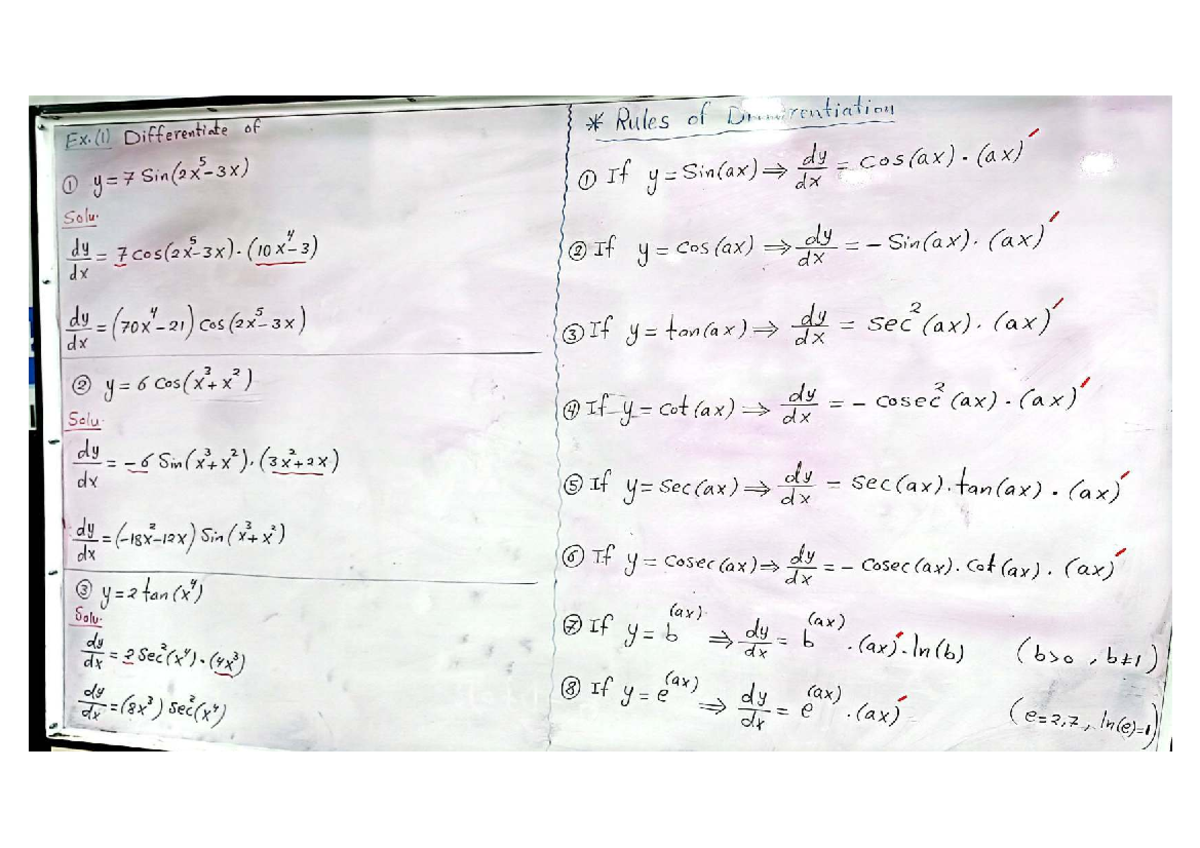 Ex.(1) Differentiate of
① y = 7 Sin(2x⁵-3x)
Solu.
dy/dx = 7 cos(2x⁵-3x).(10x⁴-3)
dy/dx = (70x⁴-21) cos(2x⁵-3x)
② y = 6 cos(x³+x²)
Solu.
dy/dx = -6 Sin(x³+x²).(3x²+2x)
dy/dx = (-18x²-12x) Sin(x³+x²)
③ y = 2 tan(x⁴)
Solu.
dy/dx = 2 Sec²(x⁴).(4x³)
dy/dx = (8x³) Sec²(x⁴)
* Rules of
① If y = Sin(ax) ⇒ dy/dx = cos(ax).(ax)′
② If y = cos(ax) ⇒ dy/dx = - Sin(ax).(ax)′
③ If y = tan(ax) ⇒ dy/dx = sec²(ax).(ax)′
④ If y = cot(ax) ⇒ dy/dx = - cosec²(ax).(ax)′
⑤ If y = Sec(ax) ⇒ dy/dx = sec(ax).tan(ax).(ax)′
⑥ If y = cosec(ax) ⇒ dy/dx = - cosec(ax).cot(ax).(ax)′
⑦ If y = b^(ax) ⇒ dy/dx = b^(ax).(ax)′.ln(b) (b>0, b≠1)
⑧ If y = e^(ax) ⇒ dy/dx = e^(ax).(ax)′ (e=2,7, ln(e)=1)